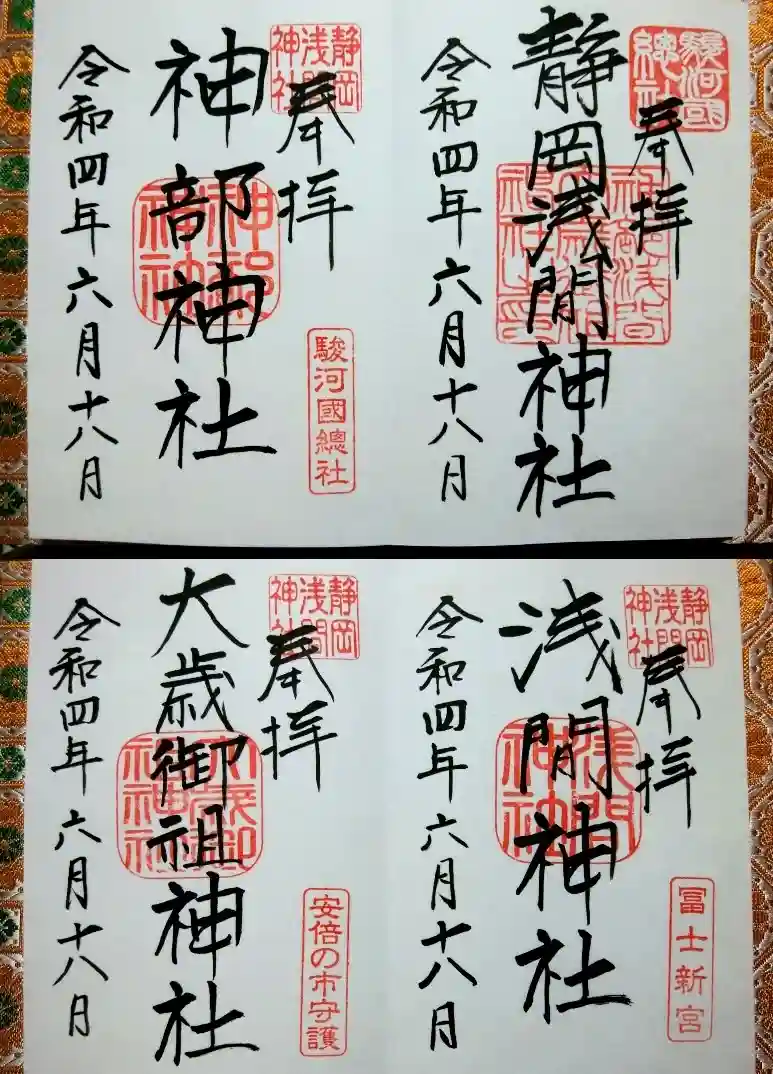 駿河國
總社
奉拝
静岡浅間神社
神部浅間
神社之印
令和四年六月十八日
静岡
浅間
神社
奉拝
駿河國總社
神部神社
神部
神社
令和四年六月十八日
静岡
浅間
神社
奉拝
冨士新宮
浅間神社
浅間
神社
令和四年六月十八日
静岡
浅間
神社
奉拝
安倍の市守護
大歳御祖神社
大歳御
祖神社
令和四年六月十八日